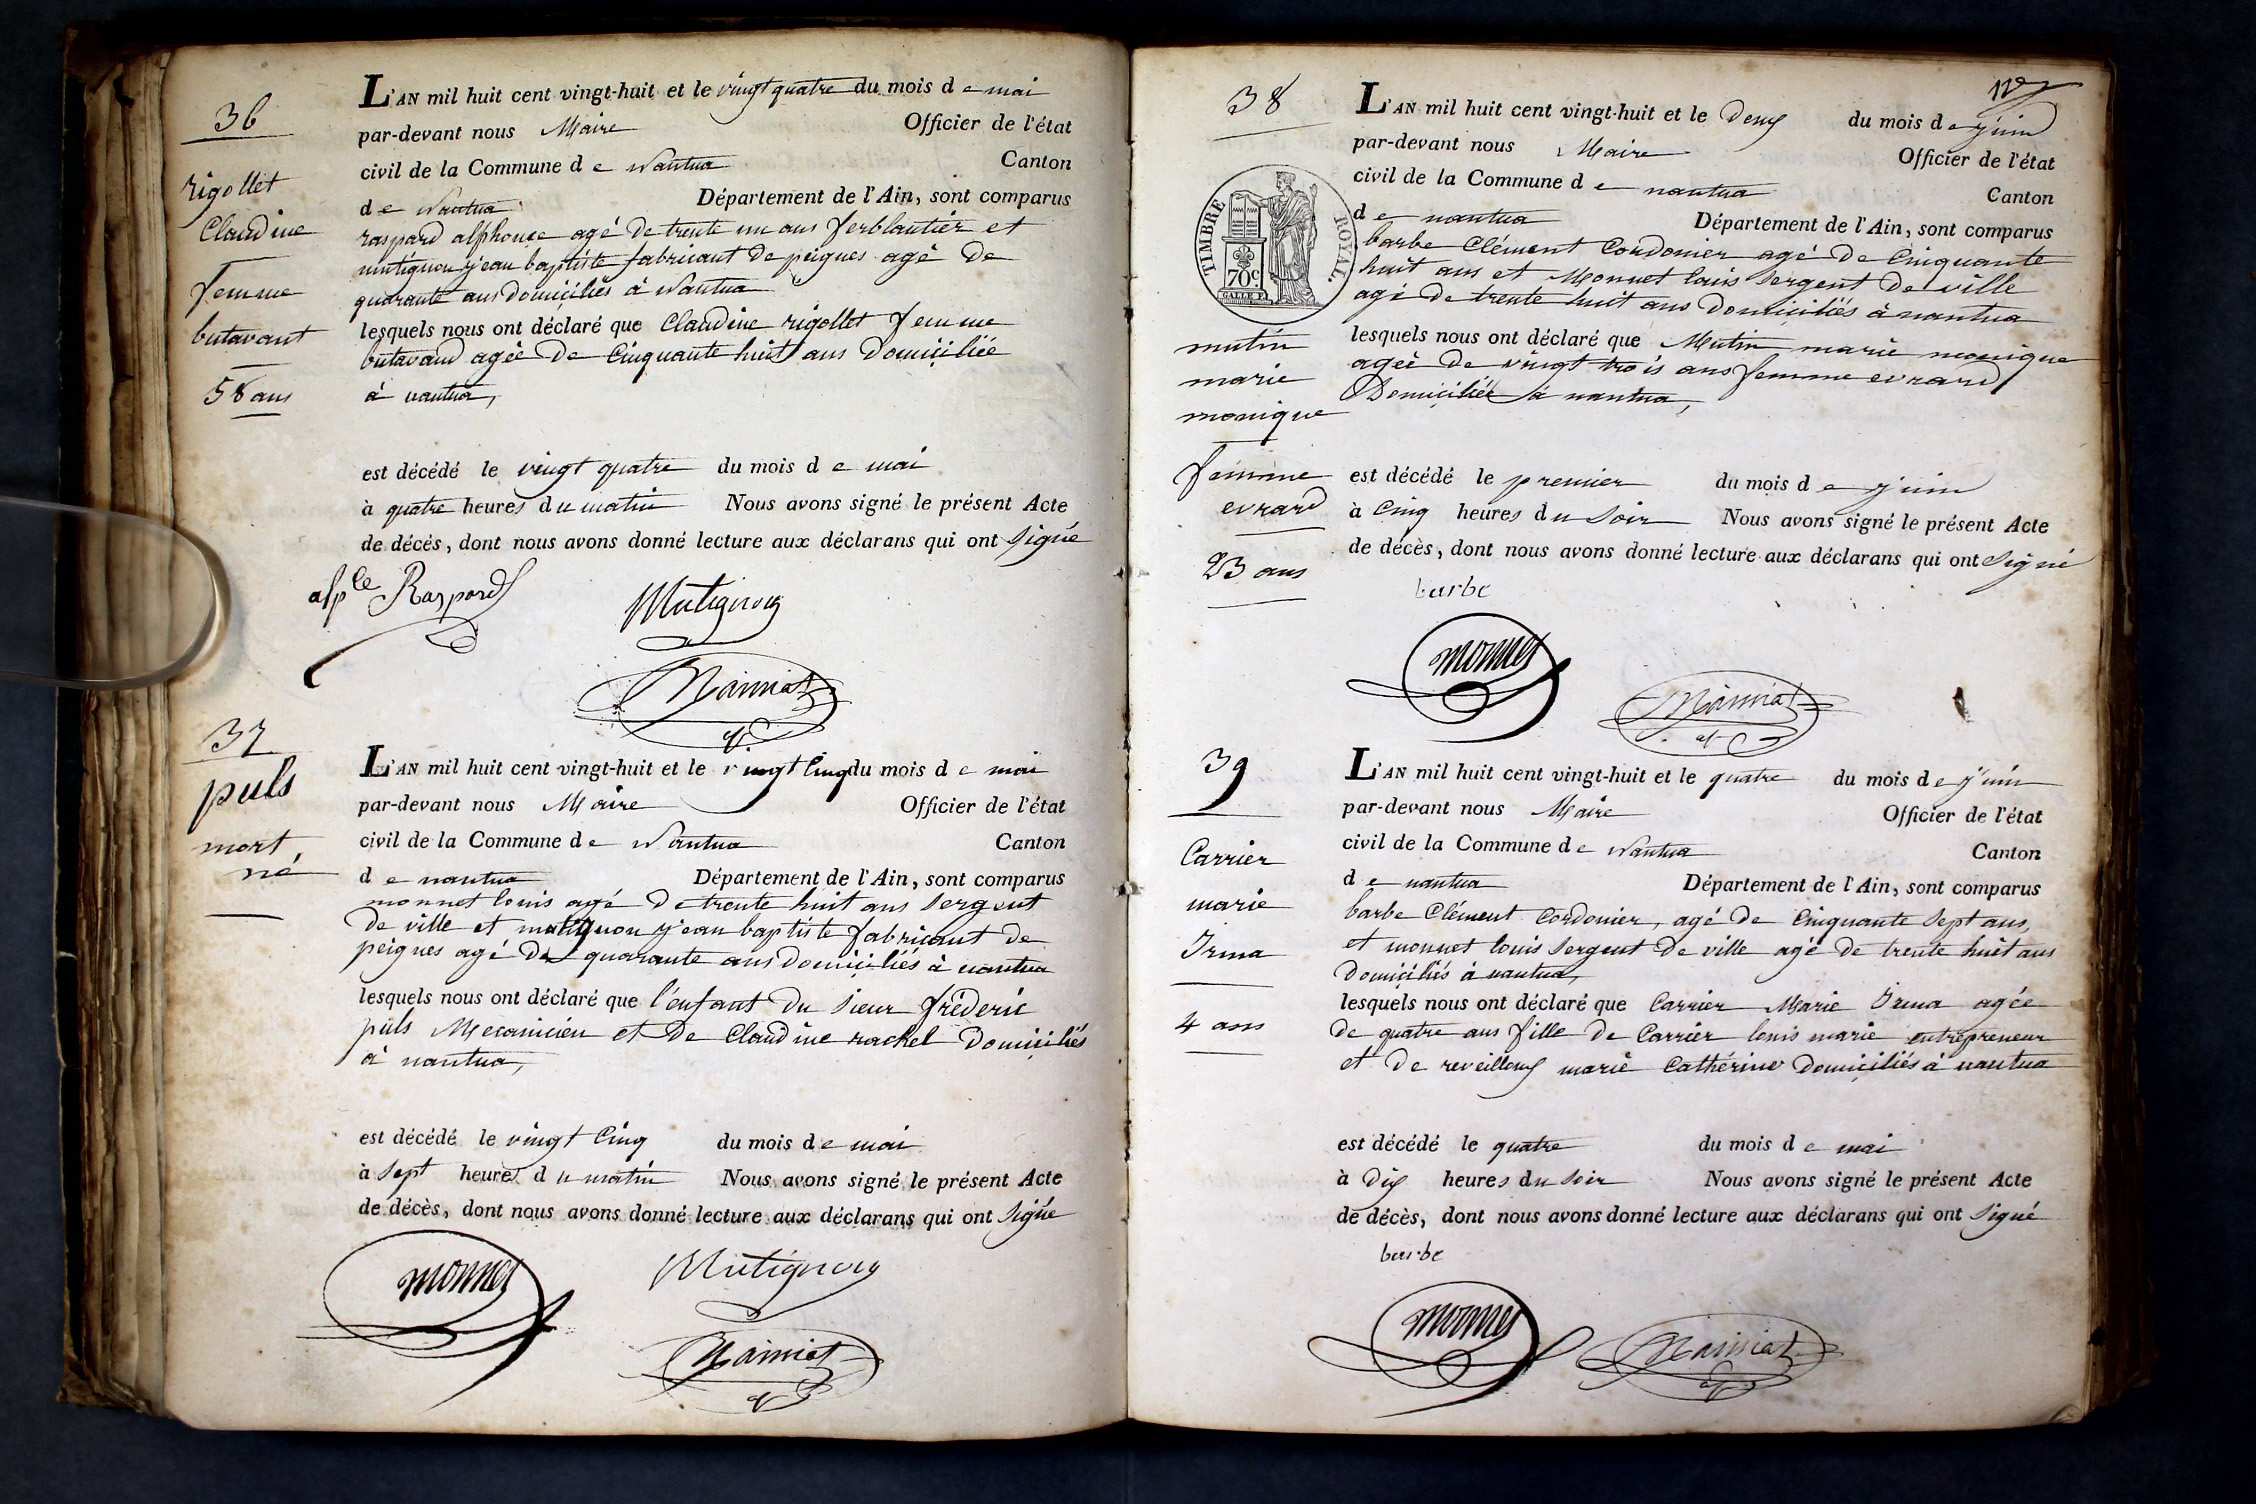 36
rigollet
Claudine
femme
butavant
58 ans
L'AN mil huit cent vingt-huit et le vingt quatre du mois de mai
par-devant nous Maire Officier de l'état
civil de la Commune de Nantua Canton
de Nantua Département de l'Ain, sont comparus
raspard alphonce agé de trente un ans ferblantier et
mutignon jean baptiste fabricant de peignes agé de
quarante ans domiciliés à Nantua
lesquels nous ont déclaré que Claudine rigollet femme
butavand agée de Cinquante huit ans domiciliée
à nantua,
est décédé le vingt quatre du mois de mai
à quatre heures du matin Nous avons signé le présent Acte
de décès, dont nous avons donné lecture aux déclarans qui ont Signé
alp.le Raspard
Mutignon
37
puls
mort
né
L'AN mil huit cent vingt-huit et le vingt Cinq du mois de mai
par-devant nous Maire Officier de l'état
civil de la Commune de Nantua Canton
de nantua Département de l'Ain, sont comparus
monnet louis agé de trente huit ans Sergent
de ville et mutignon jean baptiste fabricant de
peignes agé de quarante ans domiciliés à nantua
lesquels nous ont déclaré que l'enfant du Sieur fréderic
puls Mecanicien et de Claudine rackel domiciliés
à nantua,
est décédé le vingt Cinq du mois de mai
à Sept heures du matin Nous avons signé le présent Acte
de décès, dont nous avons donné lecture aux déclarans qui ont Signé
monnet
Mutignon
38
TIMBRE ROYAL
70c.
mutin
marie
monique
femme
evrard
23 ans
L'AN mil huit cent vingt-huit et le deux du mois de juin
par-devant nous Maire Officier de l'état
civil de la Commune de nantua Canton
de nantua Département de l'Ain, sont comparus
barbe Clément Cordonier agé de Cinquante
huit ans et Monnet louis Sergent de ville
agé de trente huit ans domiciliés à nantua
lesquels nous ont déclaré que Mutin marie monique
agée de vingt trois ans femme evrard
Domiciliée à nantua,
est décédé le premier du mois de juin
à Cinq heures du Soir Nous avons signé le présent Acte
de décès, dont nous avons donné lecture aux déclarans qui ont Signé
barbe
monnet
39
Carrier
marie
Irma
4 ans
L'AN mil huit cent vingt-huit et le quatre du mois de juin
par-devant nous Maire Officier de l'état
civil de la Commune de Nantua Canton
de nantua Département de l'Ain, sont comparus
barbe Clément Cordonier, agé de Cinquante Sept ans,
et monnet louis Sergent de ville agé de trente huit ans
Domiciliés à nantua,
lesquels nous ont déclaré que Carrier Marie Irma agée
de quatre ans fille de Carrier louis marie entrepreneur
et de reveilloux marie Cathérine domiciliés à nantua
est décédé le quatre du mois de mai
à dix heures du Soir Nous avons signé le présent Acte
de décès, dont nous avons donné lecture aux déclarans qui ont Signé
barbe
monnet